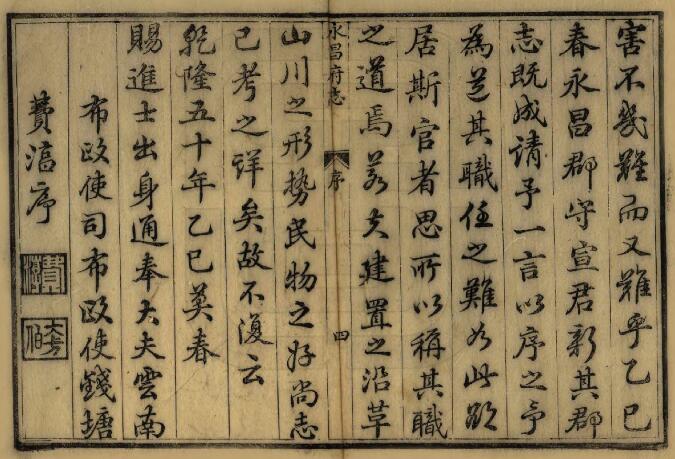 害不幾難而又難乎乙巳
春永昌郡守宣君新其郡
志既成請予一言以序之予
為道其職任之難如此欲
居斯官者思所以稱其職
之道焉若夫建置之沿革
永昌府志 序 四
山川之形勢民物之好尚志
已考之詳矣故不復云
乾隆五十年乙巳莫春
賜進士出身通奉大夫雲南
布政使司布政使錢塘
費淳序